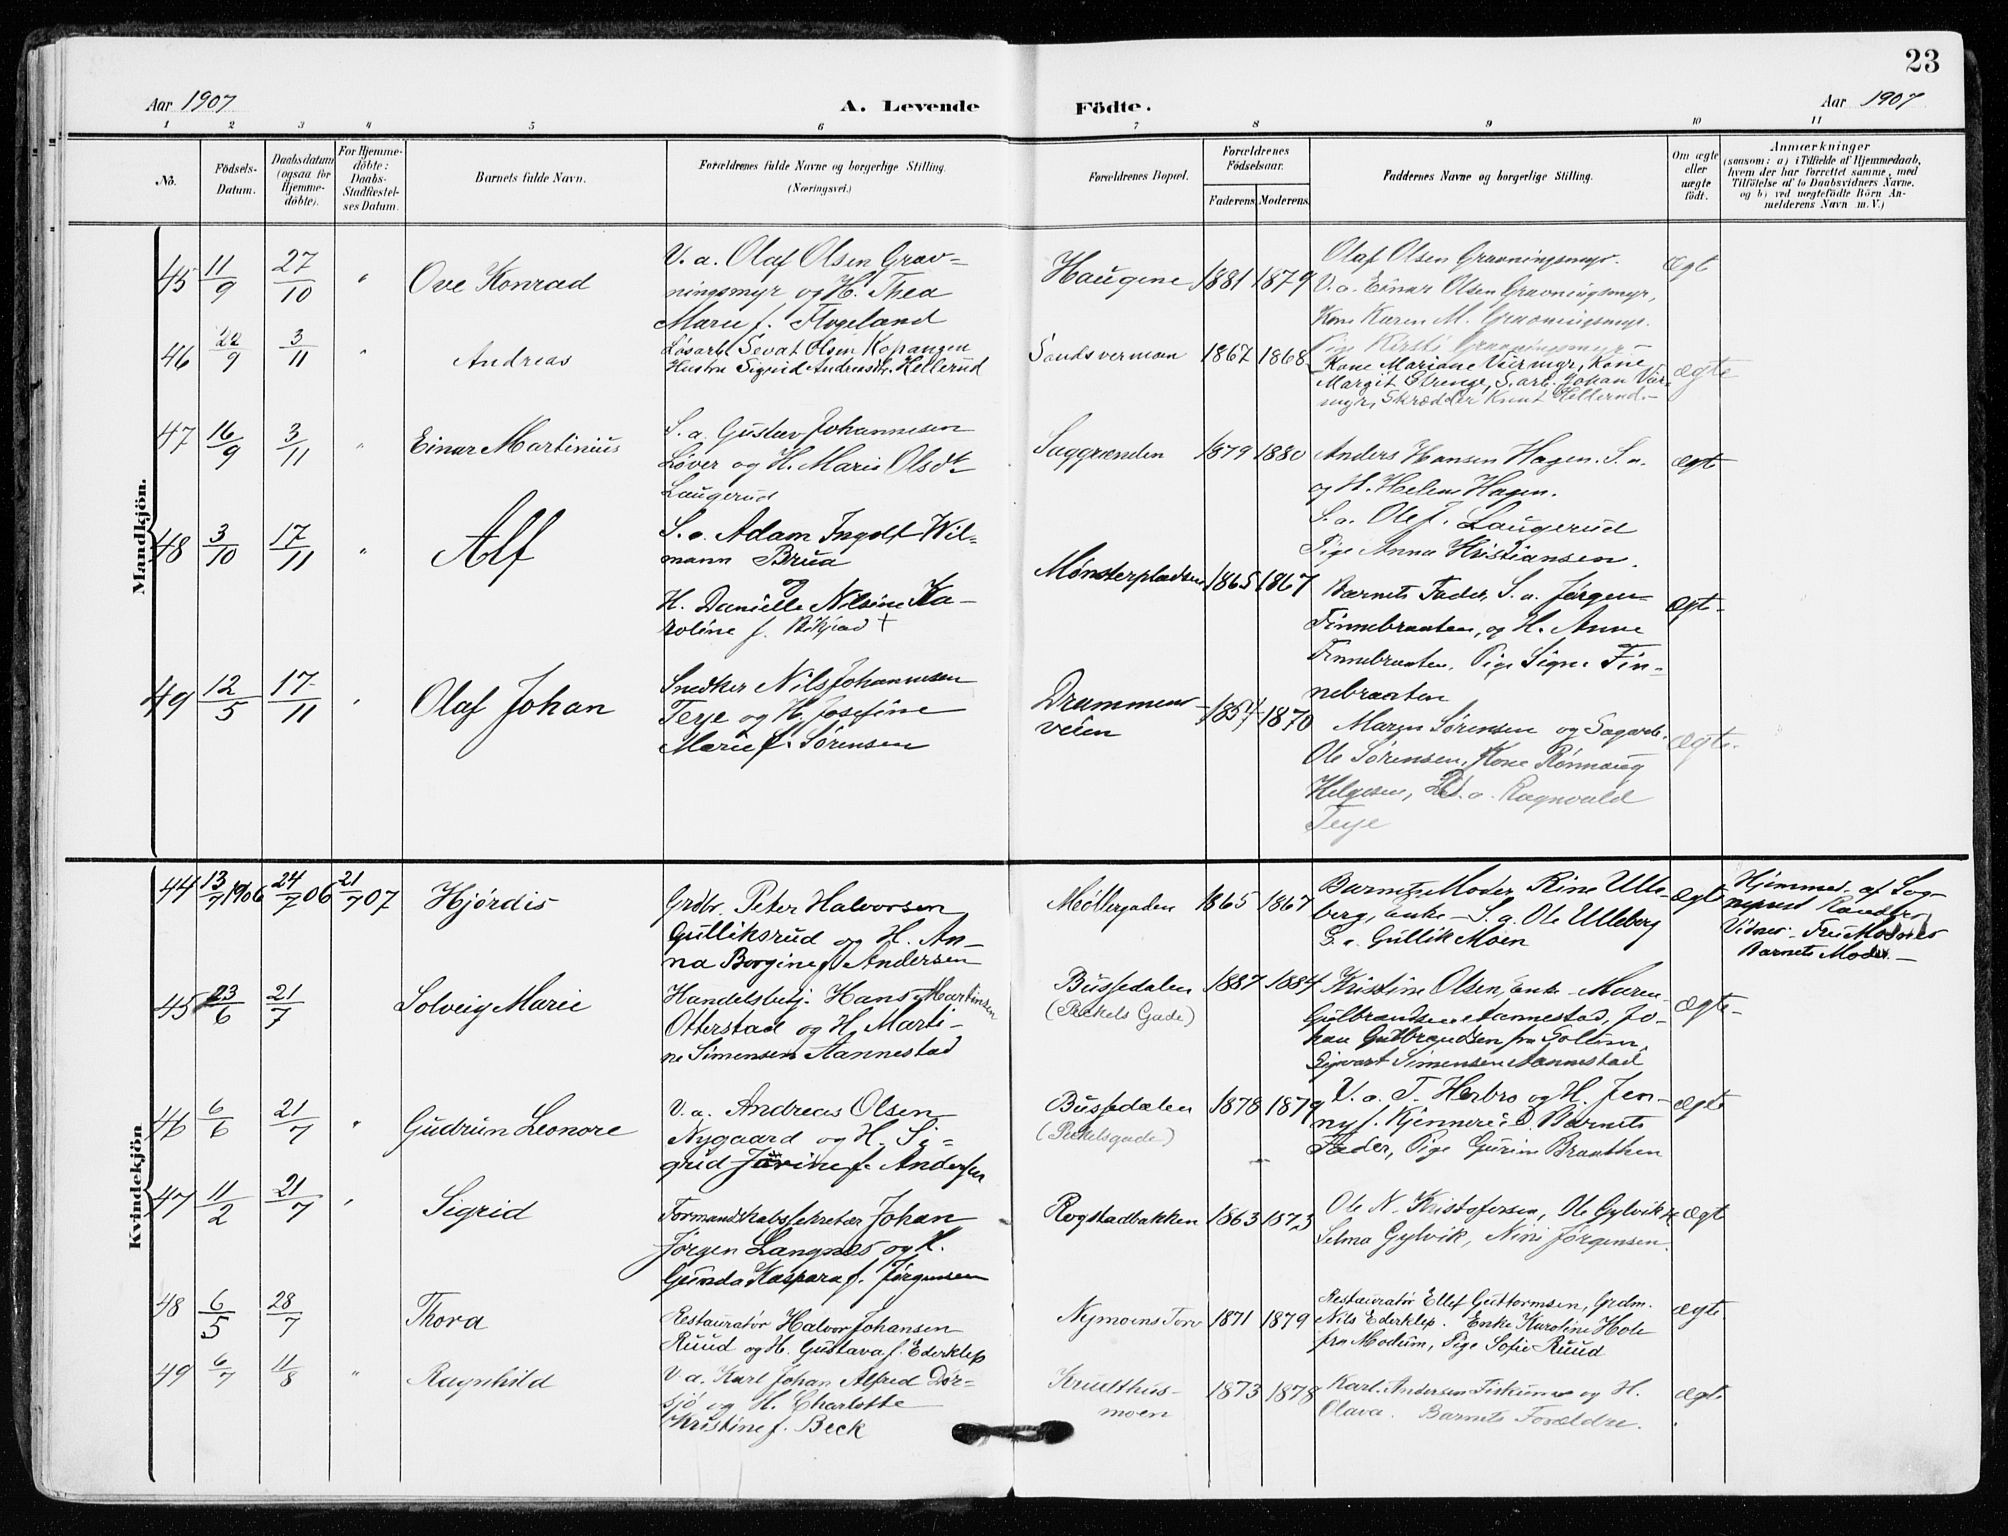 23
Aar 1907
A. Levende Födte.
Aar 1907
1 2 3 4 5 6 7 8 9 10 11
No.
Födsels-Datum.
Daabsdatum (ogsaa for Hjemme-döbte).
For Hjemme-döbte: Daabs-Stadfæstel-ses Datum.
Barnets fulde Navn.
Forældrenes fulde Navne og borgerlige Stilling.
(Næringsvei.)
Forældrenes Bopæl.
Forældrenes Födselsaar.
Faderens. Moderens.
Faddernes Navne og borgerlige Stilling.
Om ægte eller uægte födt.
Anmærkninger
(saasom: a) i Tilfælde af Hjemmedaab,
hvem der har forrettet samme, med
Tilföielse af to Daabsvidners Navne.
og b) ved uægtefödte Börn An-
melderens Navn m. V.)
Mandkjön.
45 11/9 27/10 " Ove Konrad
V. a. Olaf Olsen Grav-
ningsmyr og H. Thea
Marie f. Flogeland
Haugene 1881 1879
Olaf Olsen Gravningsmyr.
V. a. Einar Olsen Gravningsmyr,
Kone Karen M. Gravningsmyr.
Pige Kirsti Gravningsmyr
Ægt
46 22/9 3/11 " Andreas
Løsarb. Sevat Olsen Kopangen
Hustru Sigrid Andreasdtr. Hellerud
Sandsvermoen 1867 1868
Kone Mariane Viermyr, Kone
Margit Strenge, S. arb. Johan Vier-
myr, Skrædder Knut Hellerud.
Ægte
47 16/9 3/11 " Einar Martinius
S. a. Gustav Johannesen
Løver og H. Marie Olsdt
Laugerud
Saggrenden 1879 1880
Anders Hansen Hagen. S. a.
og H. Helene Hagen.
S. a. Ole J. Laugerud
Pige Anna Kristiansen.
Ægt
48 3/10 17/11 " Alf
S. a. Adam Ingolf Wil-
mann Brua
og
H. Danielle Nilsine Ka-
roline f.
Mønsterpladsen 1865 1867
Barnets Fader, S. a. Jørgen
Finnebraaten, og H. Anne
Finnebraaten, Pige Signe Fin-
nebraaten
Ægte-
49 12/5 17/11 " Olaf Johan
Snedker Nils Johannesen
Teye og H. Josefine
Marie f. Sørensen
Drammens-
veien 1857 1870
Maren Sørensen og Sagarb.
Ole Sørensen, Kone Rønnaug
Helgesen, S. a. Ragnvald
Teye
Ægte.
Kvindekjön
44 13/7 1906 24/7 06 21/7 07 Hjørdis
Grdbr. Peter Halvorsen
Gulliksrud og H. An-
na Borgine f. Andersen
Møllergaden 1865 1867
Barnets Moder, Rine Ulle-
berg, Enke - S. a. Ole Ulleberg
S. a. Gullik Moen
Ægte
Hjemmed. af Sog-
nepræst
Vidner: Fru
Barnets Moder. -
45 23/6 21/7 Solveig Marie
Handelsbetj. Hans Martinsen
Otterstad og H. Marti-
ne Simensen Aannestad
Bussedalen
(Peckels Gade) 1887 1884
Kristine Olsen, Enke - Maren
Gulbrandsen Aannestad, Jo-
han Gulbrandsen fra Solum,
Sigvart Simensen Aannestad
Ægte-
46 6/6 21/7 " Gudrun Leonore
V. a. Andreas Olsen
Nygaard og H. Si-
grid Jørine f. Andersen
Bussedalen
(Peckelsgade) 1878 1879
V. a. T. Herbro og H. Jen-
ny f. Kjennerud. Barnets
Fader, Pige Gurine Braathen
Ægte
47 11/2 21/7 " Sigrid
Formandskabssekretær Johan
Jørgen Langnes og H.
Gunda Kaspara f. Jørgensen
Rogstadbakken 1863 1873
Ole N. Kristofersen, Ole Gylvik,
Selma Gylvik, Nini Jørgensen.
Ægte
48 6/5 28/7 Thora
Restauratør Halvor Johansen
Ruud og H. Gustava f. Ederklep
Nymoens Torv 1871 1879
Restauratør Ellef Guttormsen, Grdm.
Nils Ederklep. Enke Karoline Hole
fra Modum, Pige Sofie Ruud
Ægte.
49 6/7 11/8 " Ragnhild
V. a. Karl Johan Alfred Dør-
sjö og H. Charlotte
Kristine f. Beck
Krudthus-
moen 1873 1878
Karl Andersen Fiskum og H.
Olava. Barnets Forældre.
Ægte.